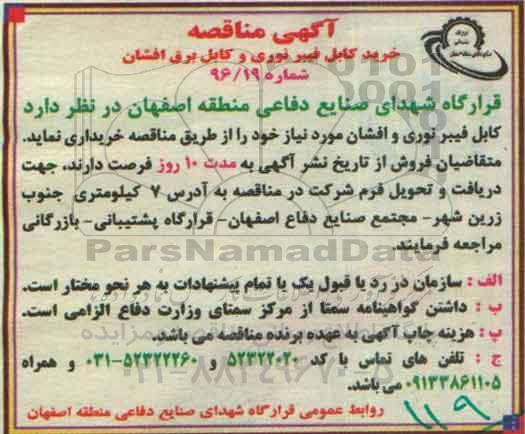 آگهی مناقصه
خرید کابل فیبر نوری و کابل برق افشان
شماره ۹۶/۱۹
قرارگاه شهدای صنایع دفاعی منطقه اصفهان در نظر دارد
کابل فیبر نوری و افشان مورد نیاز خود را از طریق مناقصه خریداری نماید.
متقاضیان فروش از تاریخ نشر آگهی به مدت ۱۰ روز فرصت دارند، جهت
دریافت و تحویل فرم شرکت در مناقصه به آدرس ۷ کیلومتری جنوب
زرین شهر- مجتمع صنایع دفاع اصفهان- قرارگاه پشتیبانی- بازرگانی
مراجعه فرمایند.
الف : سازمان در رد یا قبول یک یا تمام پیشنهادات به هر نحو مختار است.
ب : داشتن گواهینامه سمتا از مرکز سمتای وزارت دفاع الزامی است.
پ : هزینه چاپ آگهی به عهده برنده مناقصه می باشد.
ج : تلفن های تماس با کد ۵۲۳۲۲۰۲۰ و ۵۲۳۲۲۲۶۰-۰۳۱ و همراه
۰۹۱۳۳۸۶۱۱۰۵ می باشد.
روابط عمومی قرارگاه شهدای صنایع دفاعی منطقه اصفهان
۱۱۹
ParsNamadData